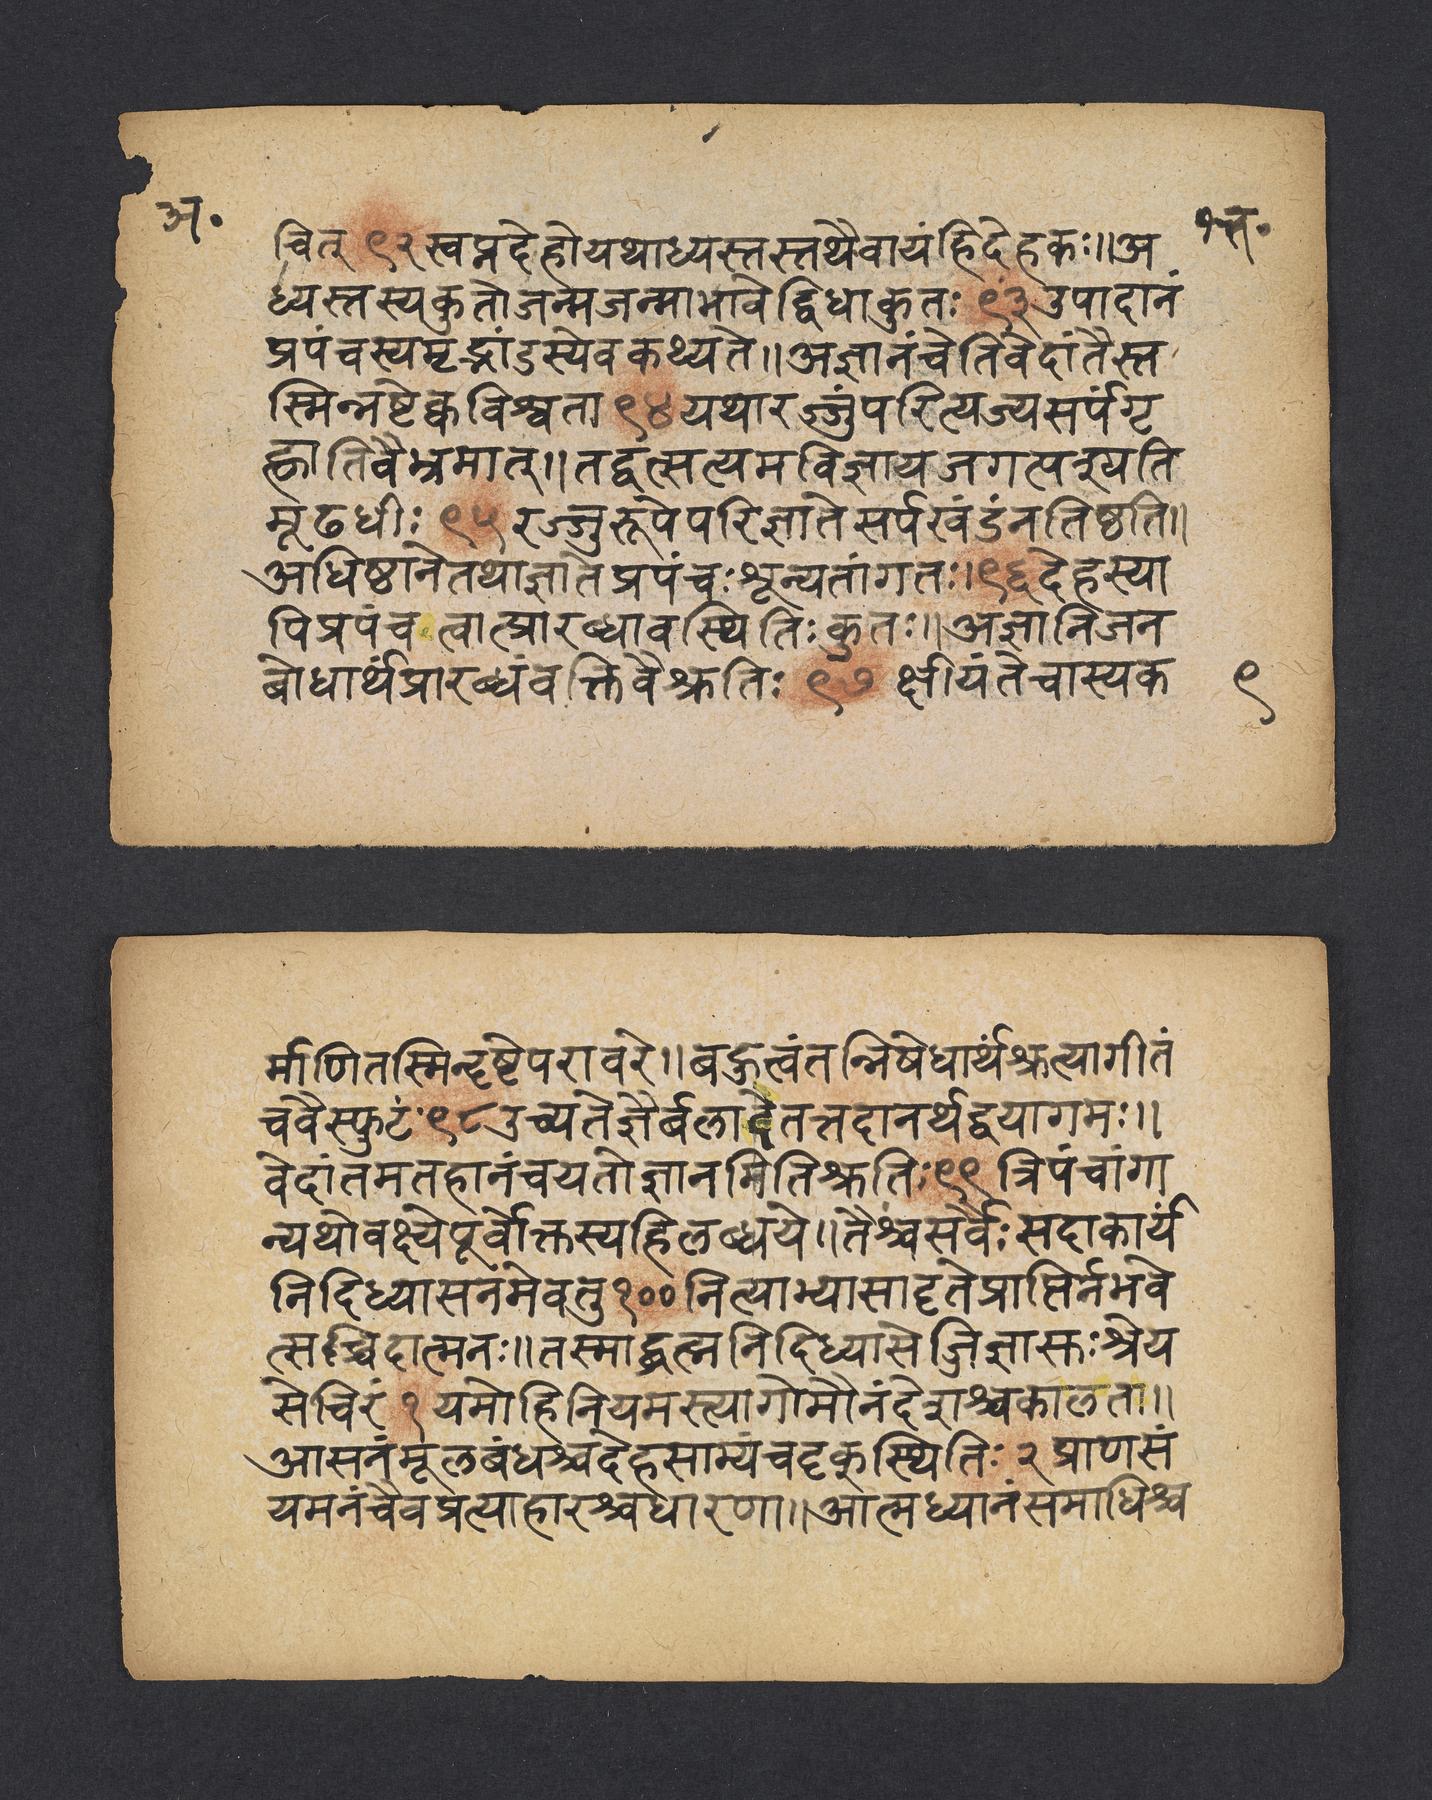 अ॰
चित् ९२ स्वप्नदेहोयथाध्यस्तस्तथैवायंहिदेहकः॥अ
ध्यस्तस्यकुतोजन्मजन्माभावेद्विधाकुतः ९३ उपादानं
प्रपंचस्यमृद्भांडस्येवकथ्यते॥अज्ञानंचेतिवेदांतैस्त
स्मिन्नष्टेक्वविश्वता ९४ यथारज्जुंपरित्यज्यसर्पंगृ
ह्णातिवैभ्रमात्॥तद्वत्सत्यमविज्ञायजगत्पश्यति
मूढधीः ९५ रज्जुरूपेपरिज्ञातेसर्पखंडंनतिष्ठति॥
अधिष्ठानेतथाज्ञातेप्रपंचःश्रून्यतांगतः।९६ देहस्या
पिप्रपंचत्वात्प्रारब्धावस्थितिःकुतः॥अज्ञानिजन
बोधार्थंप्रारब्धंवक्तिवैश्रुतिः ९७ क्षीयंतेचास्यक
९
र्माणितस्मिन्दृष्टेपरावरे॥बहुत्वंतन्निषेधार्थंश्रुत्यागीतं
चवैस्फुटं ९८ उच्यतेज्ञैर्बलाद्वैतत्तदानर्थद्वयागमः॥
वेदांतमतहानंचयतोज्ञानमितिश्रुतिः ९९ त्रिपंचांगा
न्यथोवक्ष्येपूर्वोक्तस्यहिलब्धये॥तैश्चसर्वैःसदाकार्यं
निदिध्यासनंमेवतु १०० नित्याभ्यासादृतेप्राप्तिर्नभवे
त्सच्चिदात्मनः॥तस्माद्ब्रह्मनिदिध्यासेज्जिज्ञासुःश्रेय
सेचिरं १ यमोहिनियमस्त्यागोमौनंदेशश्चकालता॥
आसनंमूलबंधश्चदेहसाम्यंचदृक्स्थितिः २ प्राणसं
यमनंचैवप्रत्याहारश्चधारणा॥आत्मध्यानंसमाधिश्च